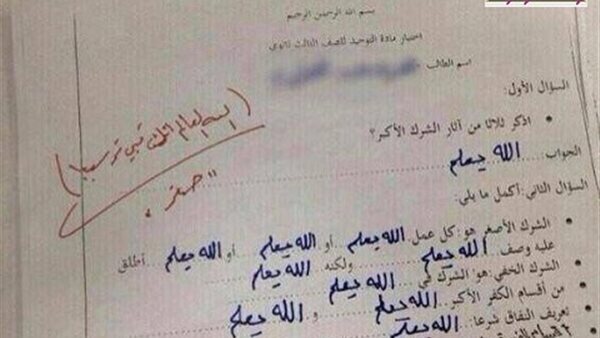 بسم الله الرحمن الرحيم
اختبار مادة التوحيد للصف الثالث ثانوي
اسم الطالب
السؤال الأول:
• اذكر ثلاثا من آثار الشرك الأكبر؟
الجواب الله يعلم
السؤال الثاني: أكمل ما يلي:
• الشرك الأصغر هو: كل عمل الله يعلم أو الله يعلم أو الله يعلم أطلق
عليه وصف الله يعلم ولكنه الله يعلم
• الشرك الخفي هو: الشرك في الله يعلم
• من أقسام الكفر الأكبر الله يعلم و الله يعلم
• تعريف النفاق شرعا: الله يعلم
"صفر"